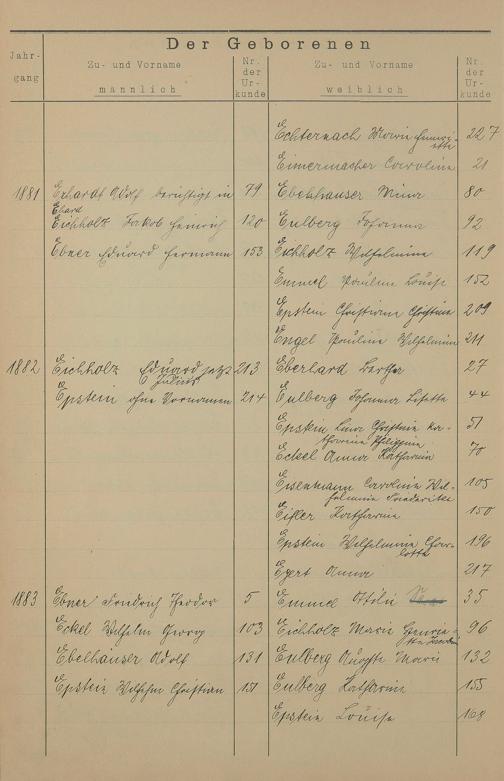 Der Geborenen
Jahr-
gang
Zu- und Vorname
männlich
Nr.
der
Ur-
kunde
Zu- und Vorname
weiblich
Nr.
der
Ur-
kunde
Echternach Marie Henri- 227
ette
Eimermacher Caroline 21
1881 Erhardt Adolf berichtigt in 79 Ebelhäuser Mina 80
Ehard
Eichholz Jakob Heinrich 120 Eulberg Johanna 92
Ebner Eduard Hermann 153 Eichholz Wilhelmine 119
Emmel Pauline Louise 152
Epstein Christiane Christine 209
Engel Pauline Wilhelmine 211
1882 Eichholz Eduard jetzt 213 Eberhard Bertha 27
Julius
Epstein ohne Vornamen 214 Eulberg Johanna Lisette 44
Epstein Lina Christine Ka- 51
tharine Philippine
Eckel Anna Katharina 70
Eisenmann Caroline Wil- 105
helmine Friederike
Eifler Katharine 150
Epstein Wilhelmine Char- 196
lotte
Egert Anna 217
1883 Ebner Friedrich Theodor 5 Emmel Ottilie 35
Eckel Wilhelm Georg 103 Eichholz Marie Henrie- 96
Ebelhäuser Adolf 131 Eulberg Auguste Marie 132
Epstein Wilhelm Christian 151 Eulberg Katharine 155
Epstein Louise 168